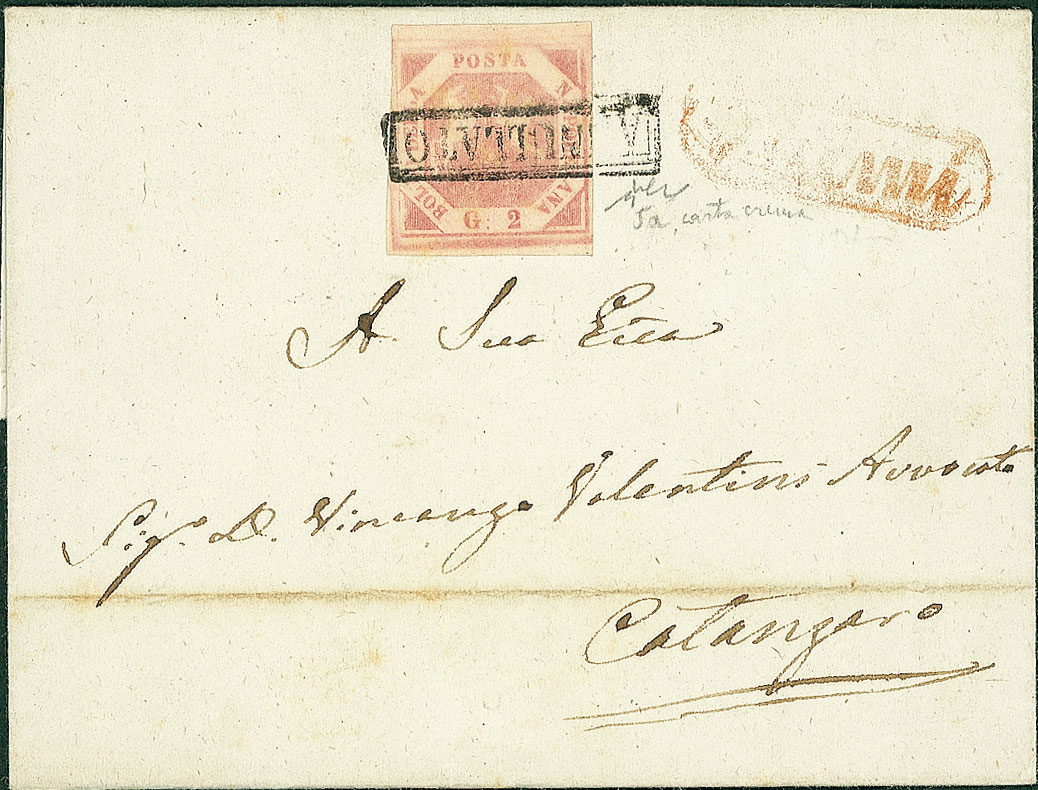 POSTA
BOL
ANA
G. 2
ANNULLATO
5a carta crema
A. Sua Ecca
Sig.r D. Vincenzo Valentini Avvocato
Catanzaro